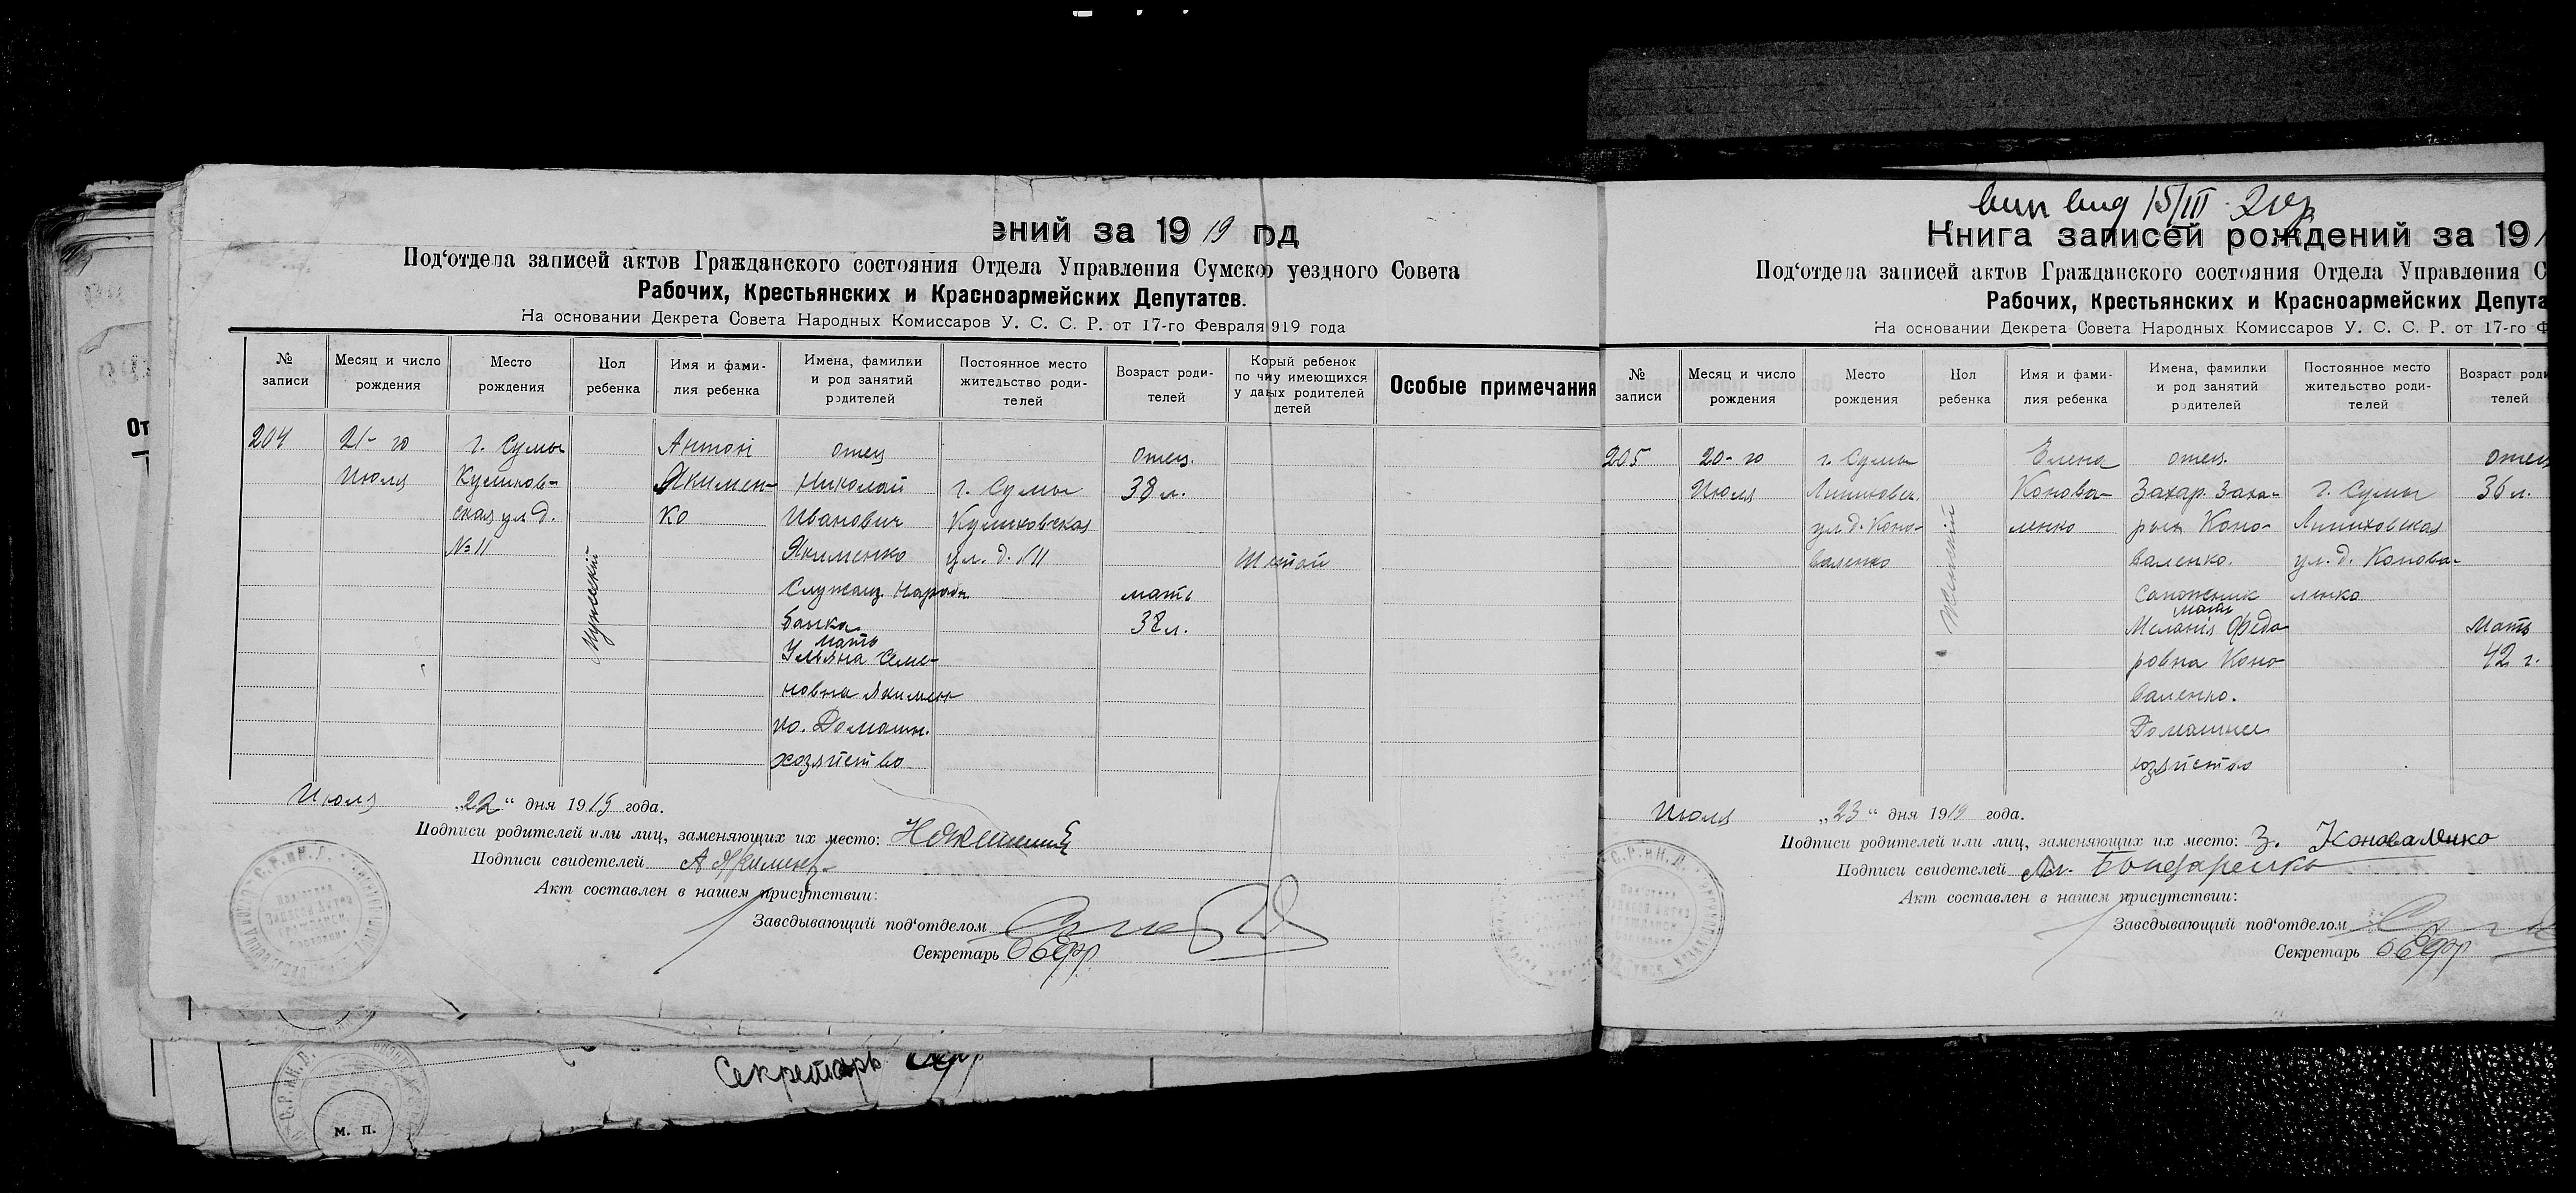 ений за 1919 год
Под‘отдела записей актов Гражданского состояния Отдела Управления Сумско уездного Совета
Рабочих, Крестьянских и Красноармейских Депутатов.
На основании Декрета Совета Народных Комиссаров У. С. С. Р. от 17-го Февраля 919 года
№ записи
Месяц и число рождения
Место рождения
Пол ребенка
Имя и фамилия ребенка
Имена, фамилки и род занятий родителей
Постоянное место жительство родителей
Возраст родителей
Корый ребенок
по чиу имеющихся
у даых родителей
детей
Особые примечания
204
21-го
Июля
г. Сумы
Куликов-
ская ул. д.
№ 11
Мужеский
Антон
Якимен-
ко
отец
Николай
Иванович
Якименко
Служащ. Народн
Банка
мать
Ульяна Семе-
новна Якимен
ко. Домашн.
хозяйство
г. Сумы
Куликовская
ул. д. 11
отец.
38 л.
мать
38 л.
Шестой
Июля „22“ дня 1919 года.
Подписи родителей или лиц, заменяющих их место:
Подписи свидетелей А Якименко
Акт составлен в нашем присутствии:
Заведывающий под‘отделом
Секретарь
Секретарь
м. п.
От
15/III
Книга записей рождений за 191
Под‘отдела записей актов Гражданского состояния Отдела Управления С
Рабочих, Крестьянских и Красноармейских Депута
На основании Декрета Совета Народных Комиссаров У. С. С. Р. от 17-го Ф
№ записи
Месяц и число рождения
Место рождения
Пол ребенка
Имя и фамилия ребенка
Имена, фамилки и род занятий родителей
Постоянное место жительство родителей
Возраст роди
телей
205
20-го
Июля
г. Сумы
ул. д. Коно-
валенко
Женский
Елена
Конова-
ленко
отец.
Захар. Заха-
рыч Коно-
валенко.
Сапожник
мать
Меланія Федо
ровна Коно-
валенко.
Домашнее
хозяйство
г. Сумы
ул. д. Конова-
ленко
отец
36 л.
мать
42 г.
Июля „23“ дня 1919 года.
Подписи родителей или лиц, заменяющих их место: З. Коноваленко
Подписи свидетелей Бондаренко
Акт составлен в нашем присутствии:
Заведывающий под‘отделом
Секретарь